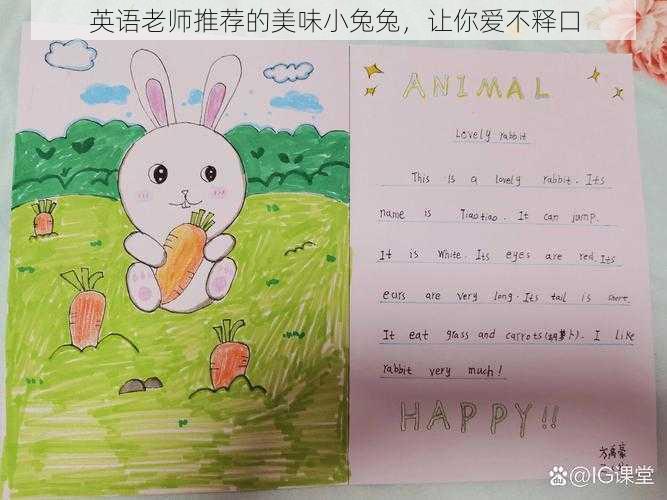 英语老师推荐的美味小兔兔，让你爱不释口
ANIMAL
Lovely rabbit
This is a lovely rabbit. Its
name is Tiaotiao. It can jump.
It is white. Its eyes are red. Its
ears are very long. Its tail is short.
It eat grass and carrots(胡萝卜). I like
rabbit very much!
HAPPY!!
@IG课堂